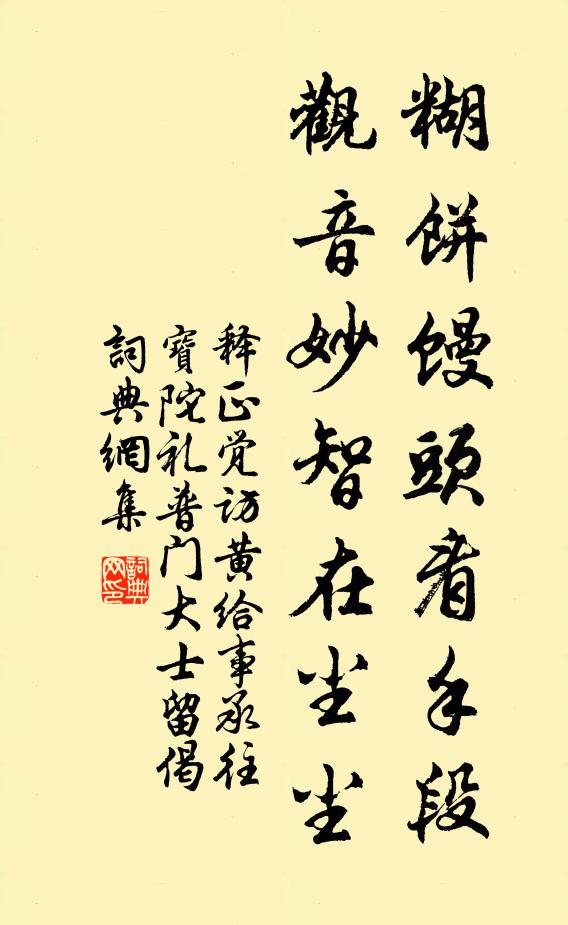 糊餅馒頭看手段
觀音妙智在尘尘
释正觉访黄给事承往
寶陀礼普门大士留偈
詞典網集
詞典网印